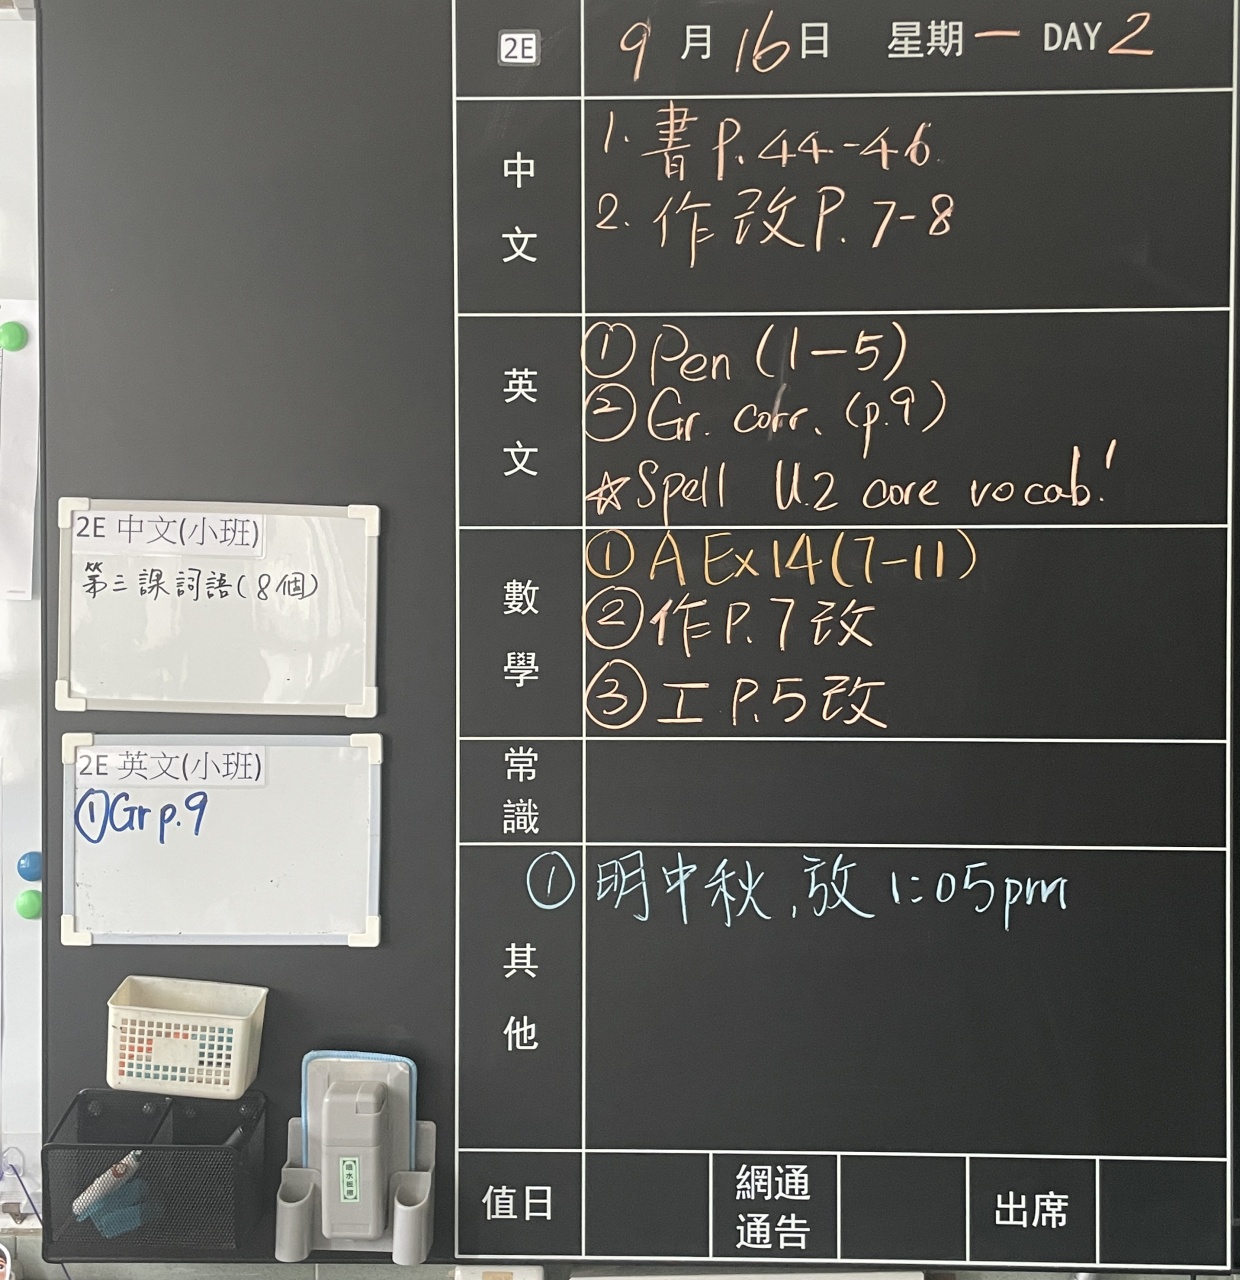 2E
9月16日 星期一 DAY 2
中文
1. 書P.44-46
2. 作改P.7-8
英文
① Pen (1-5)
② Gr. corr. (p.9)
☆Spell U.2 core vocab!
數學
① A Ex14(7-11)
② 作P.7改
③ 工P.5改
常識
其他
① 明中秋,放1:05pm
值日
網通通告
出席
2E 中文(小班)
第三課詞語(8個)
2E 英文(小班)
①Gr p.9